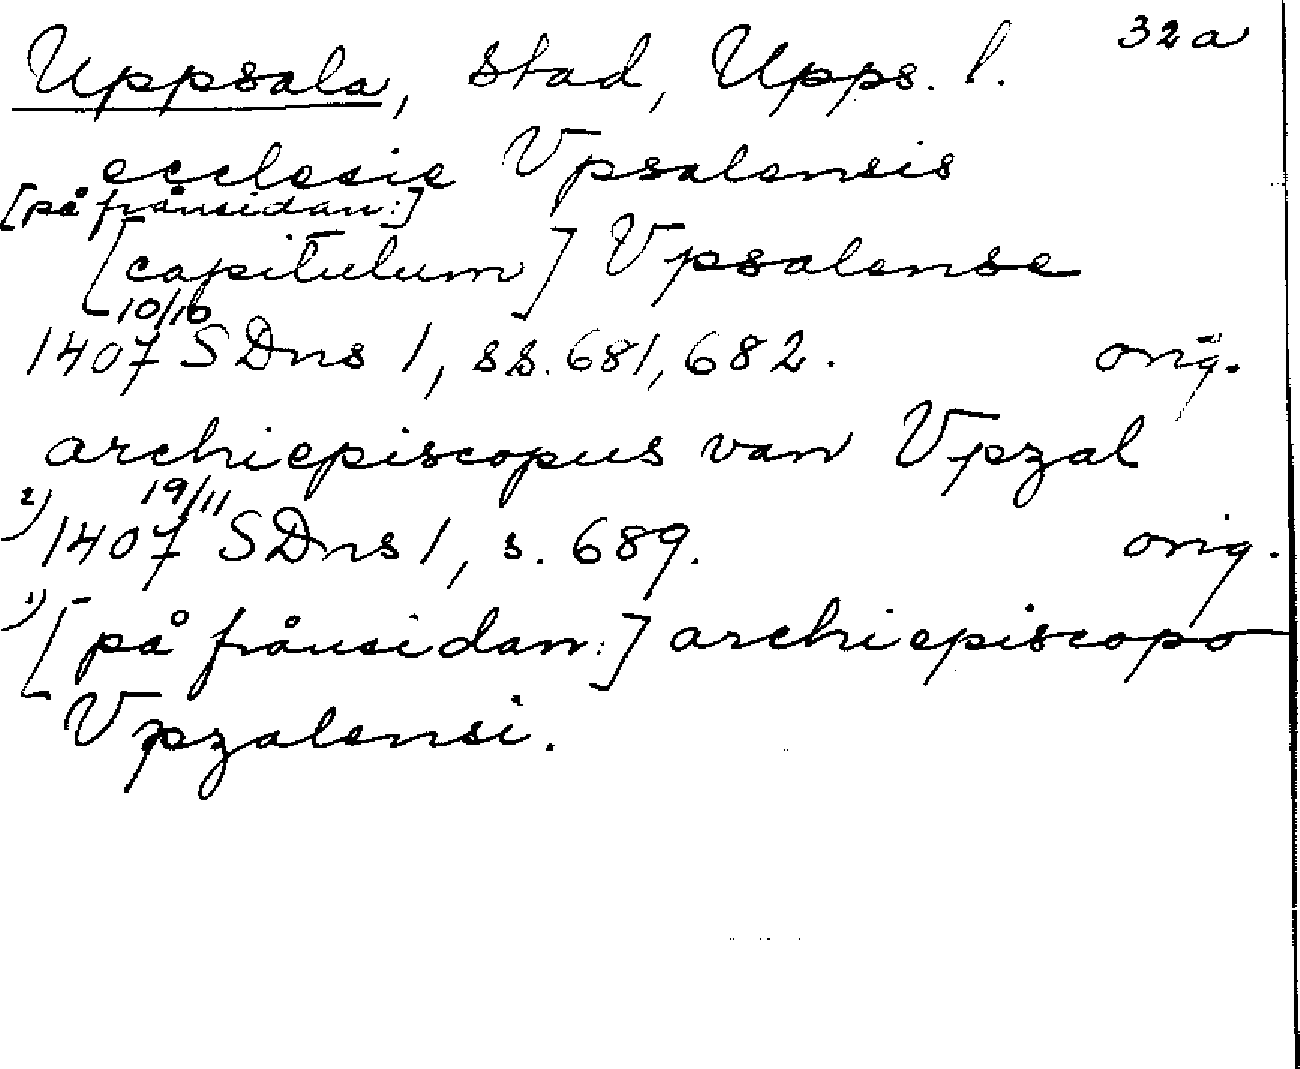 32a
Uppsala, stad, Upps. l.
ecclesie Vpsalensis
[på frånsidan:]
[capitulum] Vpsalense
10/10
1407 SDns 1, ss. 681, 682. orig.
archiepiscopus van Vpzal
19/11
2) 1407 SDns 1, s. 689. orig.
1) [på frånsidan:] archiepiscopo
Vpzalensi.